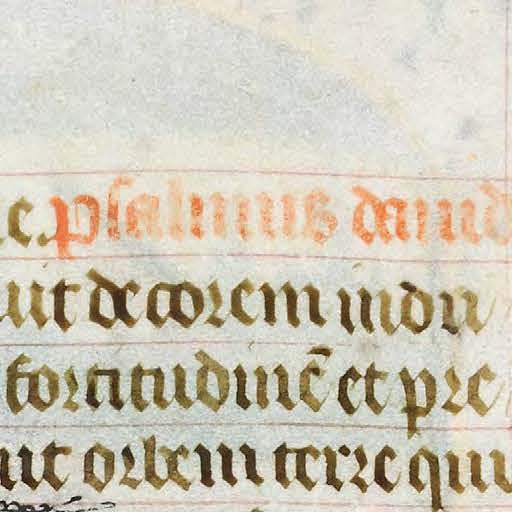 c. psalmus dauid
uit decorem indu
fortitudinē et pre
uit orbem terre qui